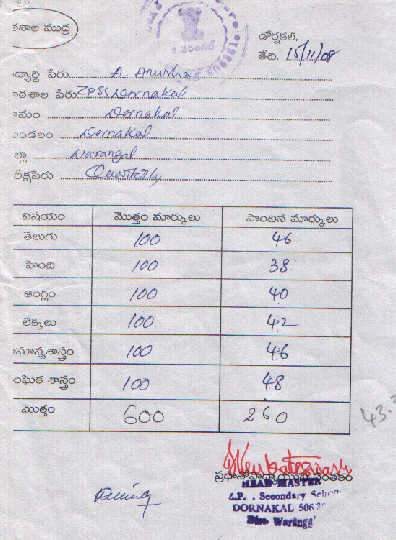 కశాల ముద్ర
డోర్నకల్,
తేది. 15/11/08
ద్యార్థి పేరు A. Anusha
ఠశాల పేరు ZPSS Dornakal
ామం Dornakal
ండలం Dornakal
ల్లా Warangal
రీక్షపేరు Quarterly
విషయం మొత్తం మార్కులు పొందిన మార్కులు
తెలుగు 100 46
హింది 100 38
ఆంగ్లం 100 40
లెక్కలు 100 42
సామాన్యశాస్త్రం 100 46
ంఘిక శాస్త్రం 100 48
మొత్తం 600 260
43.3
ప్రధానోపాధ్యాయుని సంతకం
HEAD MASTER
Z.P. . Secondary School
DORNAKAL 506
Dist. Warangal